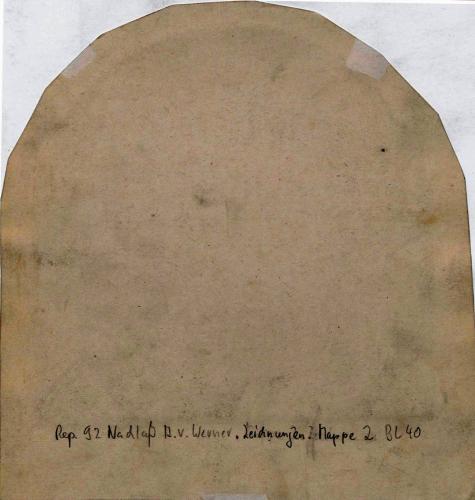 Rep. 92 Nachlaß A.v. Werner. Zeichnungen: Mappe 2 Bl 40